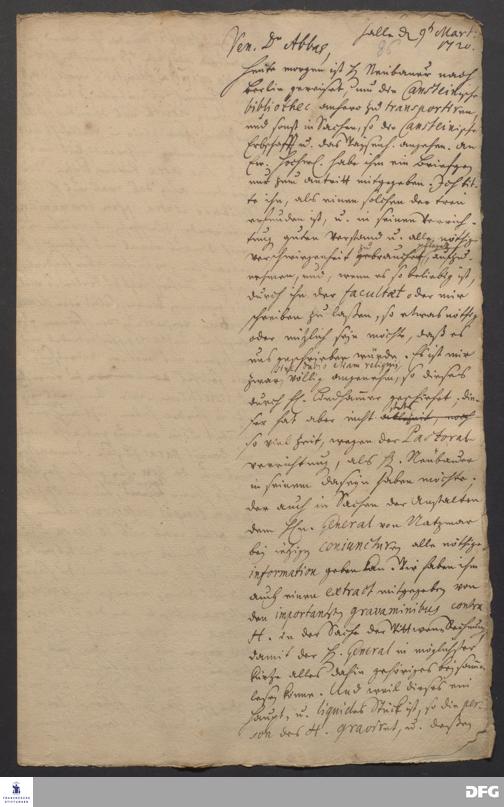 Halle d. 9t Mart.
1720.
Ven. Dn. Abbas,
86
Heute morgen ist H. Neubauer nach
Berlin gereiset, um die Cansteinische
bibliothec anhero zu transportiren
und sonst in Sachen, so die Cansteinische
Erbschafft u. das Waysenh. angehen. An
Ew. Hochw. habe ihm ein Briefgen
nur zum antritt mitgegeben. Ich bit-
te ihn, als einen solchen der treu
erfunden ist, u. in seinen Verrich-
tung guten Verstand u. alle nöthige
Verschwiegenheit zu gebrauchen, aufzu-
nehmen, und, wenn es so beliebig ist,
durch ihn der Facultät oder mir
schreiben zu laßen, so etwas nöthig
oder nützlich seyn möchte, daß es
uns geschrieben würde. Es ist mir
zwar völlig angenehm, so dieses
durch H. geschiehet, die-
ser hat aber nicht noch
so viel Zeit, wegen der Pastoral-
verrichtung, als H. Neubauer
in seinem daseyn haben möchte,
der auch in Sachen der Anstalten
dem Hn. General von Natzmar
bei itzigen coniuncturen alle nöthige
information geben kan. Wir haben ihm
auch einen extract mitgegeben von
den importantesten gravaminibus contra
H. in der Sache der
damit der H. General in möglichster
kürtze alles dahin gehöriges beysamen
lesen könne. Und weil dieses ein
Haupt- u. liquides Stück ist, so die per-
son des H. graviret, u. deßen
FRANCKESCHE
STIFTUNGEN
DFG